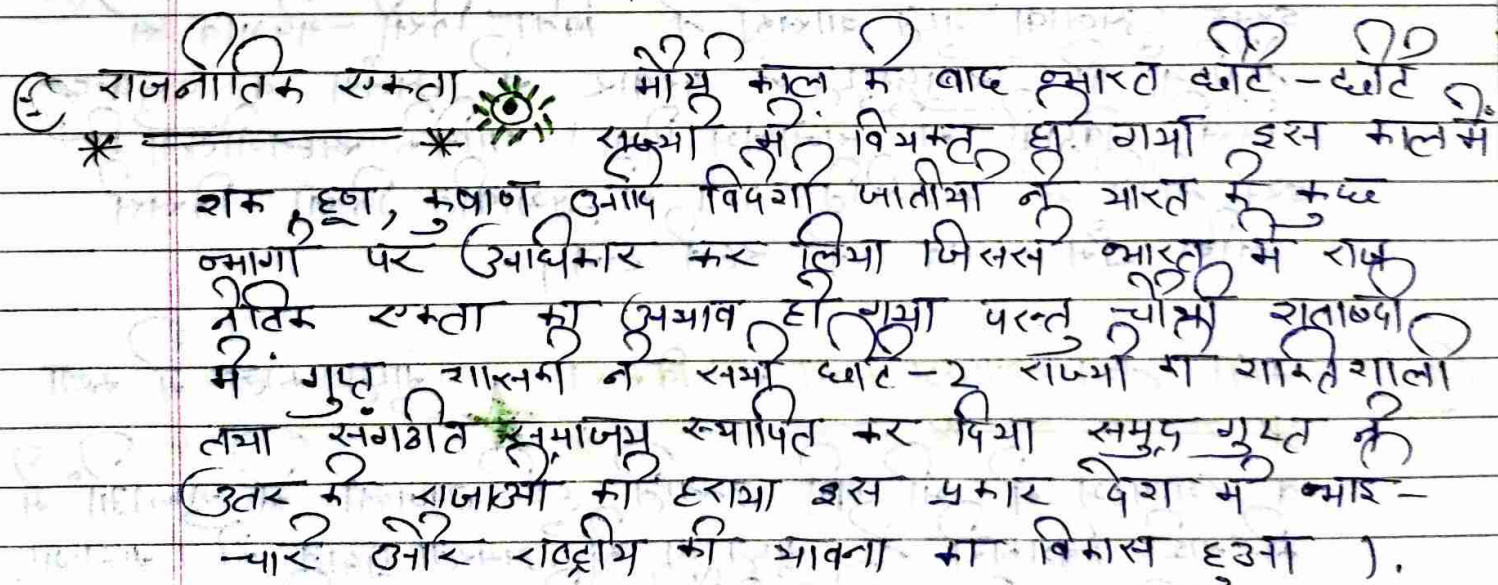 राजनीतिक एकता मौर्य काल के बाद भारत छोटे-छोटे
राज्यों में विभक्त हो गया इस काल में
शक, हूण, कुषाण आदि विदेशी जातीयों ने भारत के कुछ
भागों पर अधिकार कर लिया जिससे भारत में राज
नैतिक एकता का अभाव हो गया परन्तु चौथी शताब्दी
में गुप्त शासकों ने सभी छोटे-2 राज्यों को शक्तिशाली
तथा संगठीत समाजय स्थापित कर दिया समुद्र गुप्त ने
उतर के राजाओं को हराया इस प्रकार देश में भाई-
चारे और राष्ट्रीय की भावना का विकास हुआ ).